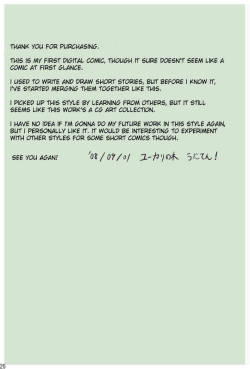 THANK YOU FOR PURCHASING.
THIS IS MY FIRST DIGITAL COMIC, THOUGH IT SURE DOESN'T SEEM LIKE A
COMIC AT FIRST GLANCE.
I USED TO WRITE AND DRAW SHORT STORIES, BUT BEFORE I KNEW IT,
I'VE STARTED MERGING THEM TOGETHER LIKE THIS.
I PICKED UP THIS STYLE BY LEARNING FROM OTHERS, BUT IT STILL
SEEMS LIKE THIS WORK'S A CG ART COLLECTION.
I HAVE NO IDEA IF I'M GONNA DO MY FUTURE WORK IN THIS STYLE AGAIN,
BUT I PERSONALLY LIKE IT. IT WOULD BE INTERESTING TO EXPERIMENT
WITH OTHER STYLES FOR SOME SHORT COMICS THOUGH.
SEE YOU AGAIN! '08/09/01 ユーカリの木 うにてん!
25